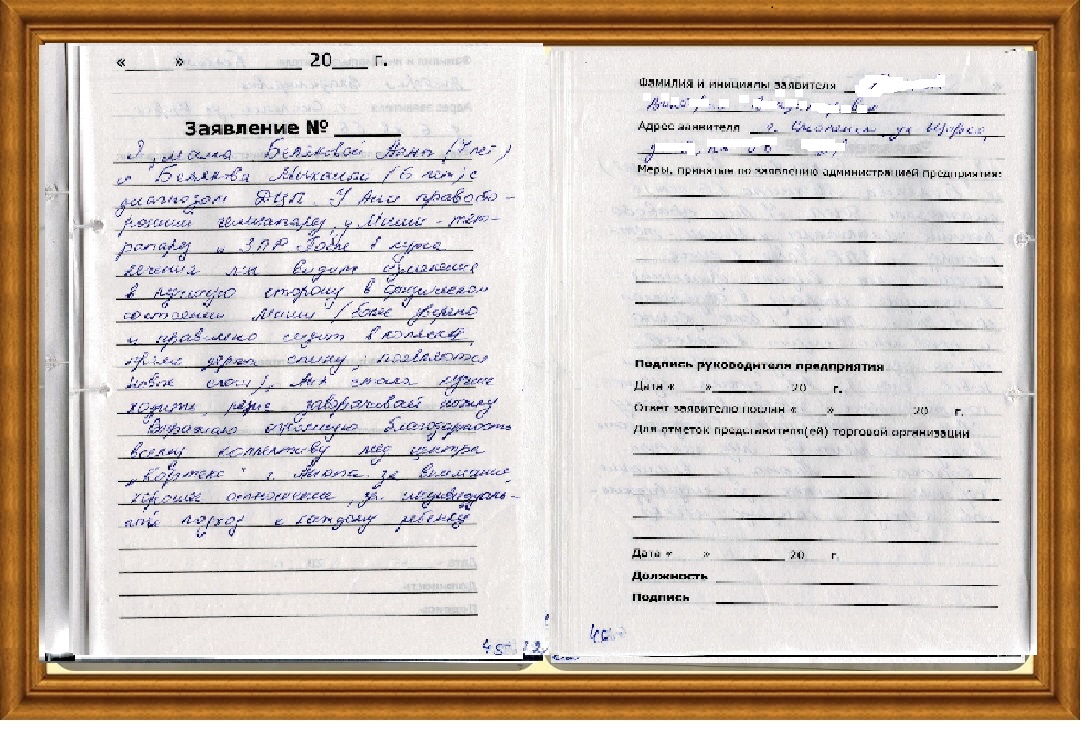 « » 20 г.
Заявление №
Я, мама Беляковой Анны (7 лет)
и Белякова Михаила (6 лет) с
диагнозом ДЦП. У Ани правосто-
ронний гемипарез, у Миши - тет-
рапарез и ЗПР. После 1 курса
лечения мы видим изменения
в лучшую сторону в физическом
состоянии Миши (более уверено
и правильно сидит в коляске,
прямо держа спину, появляются
новые слоги), Аня стала лучше
ходить, реже заворачивает ножку
Выражаю огромную благодарность
всему коллективу мед. центра
г. Анапа за внимание,
хорошее отношение, за индивидуаль-
ный подход к каждому ребенку
45
Фамилия и инициалы заявителя
Адрес заявителя г. ул.
Меры, принятые по заявлению администрацией предприятия:
Подпись руководителя предприятия
Дата « » 20 г.
Ответ заявителю послан « » 20 г.
Для отметок представителя(ей) торговой организации
Дата « » 20 г.
Должность
Подпись
46